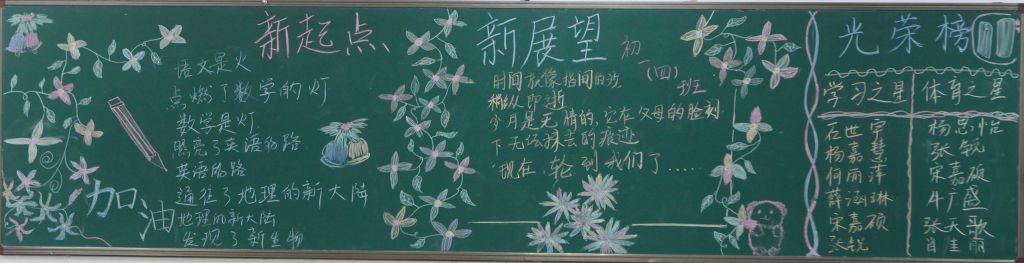 新起点
语文是火
点燃了数学的灯
数学是灯
照亮了英语的路
英语的路
通往了地理的新大陆
地理的新大陆
发现了新生物
加油
新展望
初一(四)班
时间就像指间的沙
稍纵即逝
岁月是无情的,它在父母的脸刻
下无法抹去的痕迹
现在,轮到我们了......
光荣榜
学习之星
石世宇
杨嘉慧
何雨泽
薛涵琳
宋嘉硕
张锐
体育之星
杨思怡
张锐
宋嘉硕
牛广盛
张天歌
肖圭雨